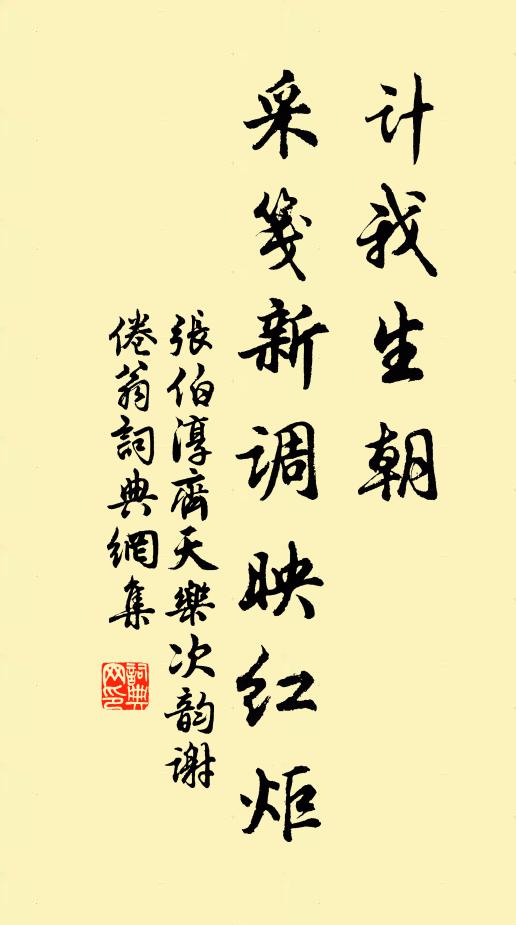 计我生朝
采笺新调映红炬
張伯淳齊天樂次韵谢
倦翁詞典網集
詞典网印